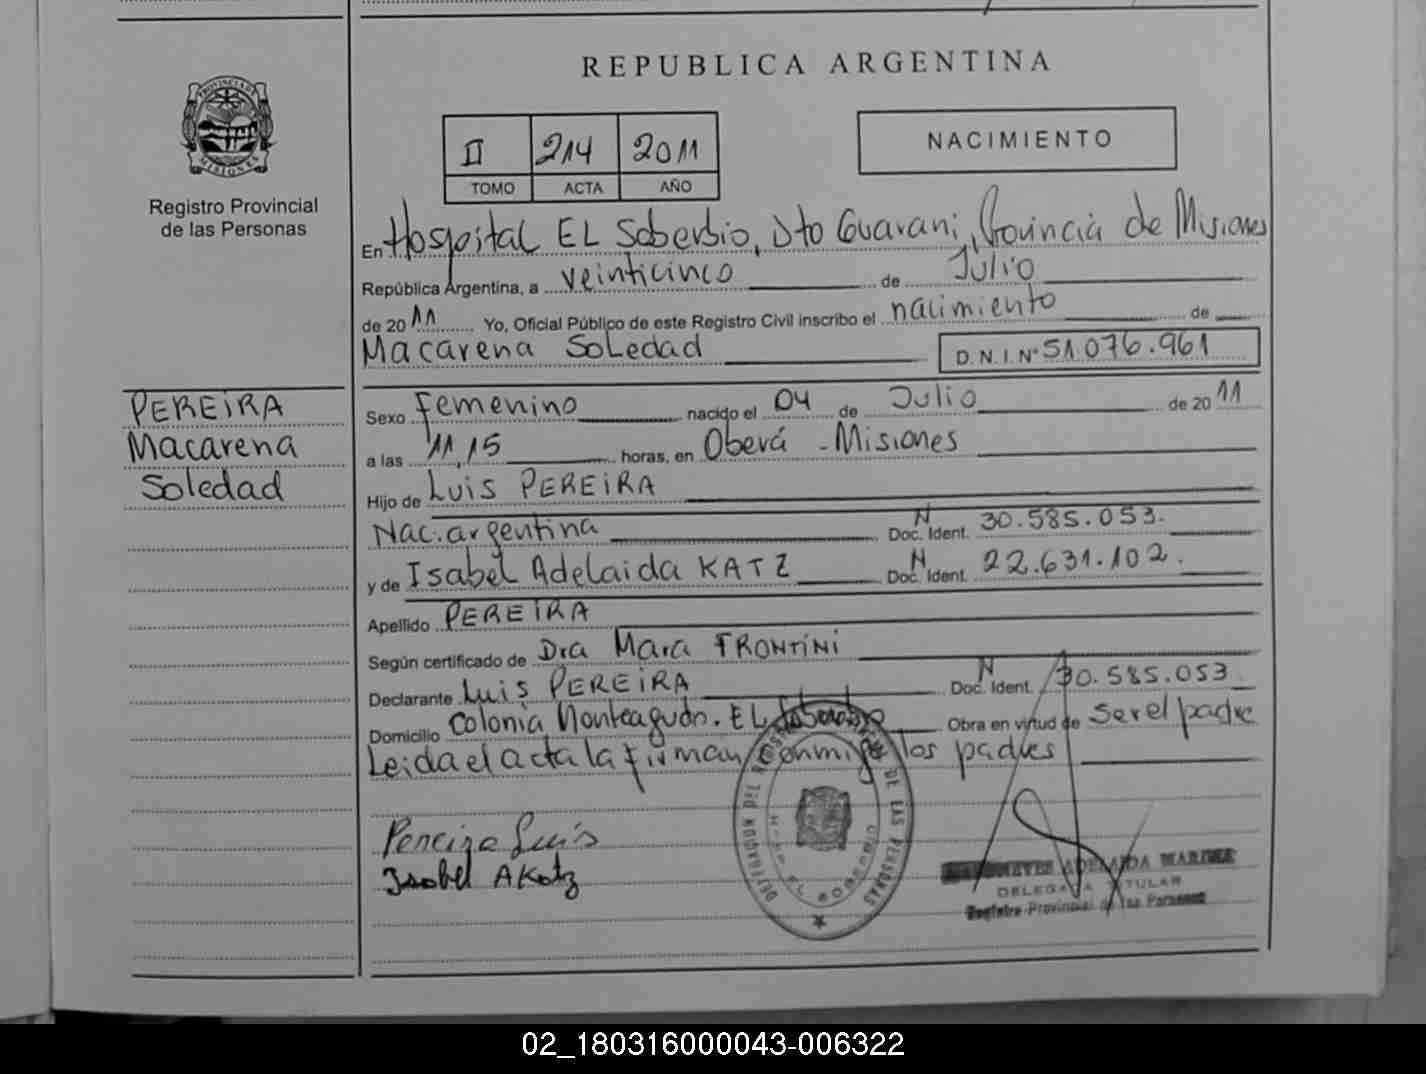 REPUBLICA ARGENTINA
PROVINCIA DE
MISIONES
Registro Provincial
de las Personas
II 214 2011
TOMO ACTA AÑO
NACIMIENTO
En Hospital EL Soberbio, Dto Guarani, Provincia de Misiones
República Argentina, a veinticinco de Julio
de 2011 Yo, Oficial Público de este Registro Civil inscribo el nacimiento de
Macarena Soledad D.N.I.Nº 51.076.961
PEREIRA
Macarena
Soledad
Sexo Femenino nacido el 04 de Julio de 2011
a las 11,15 horas, en Oberá - Misiones
Hijo de Luis PEREIRA
Nac. argentina Doc. Ident. N 30.585.053.
y de Isabel Adelaida KATZ Doc. Ident. N 22.631.102.
Apellido PEREIRA
Según certificado de Dra Mara FRONTINI
Declarante Luis PEREIRA Doc. Ident. N 30.585.053
Domicilio Colonia Monteagudo. EL Soberbio Obra en virtud de ser el padre
Leida el acta la firman conmigo los padres
Pereira Luis
Isabel A Katz
DELEGACION DEL REGISTRO PROVINCIAL DE LAS PERSONAS
EL SOBERBIO
ADELAIDA
DELEGADA TITULAR
Registro Provincial de las Personas
02_180316000043-006322